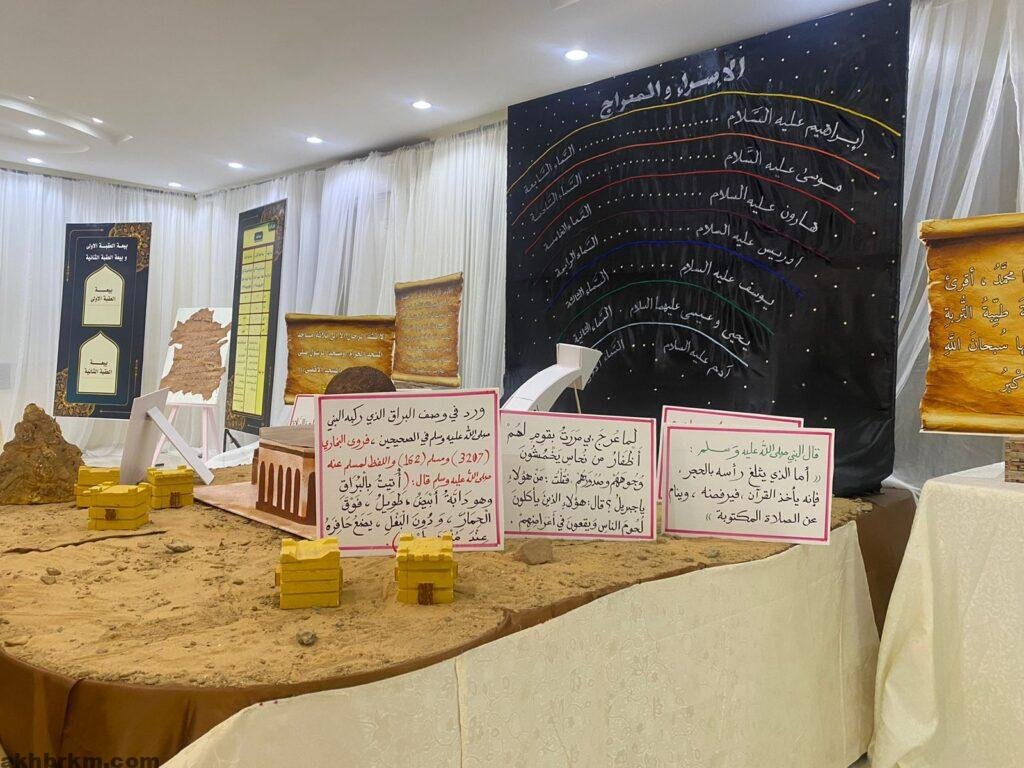 الإسراء والمعراج
إبراهيم عليه السّلام ........ السّماء السّابعة
موسى عليه السّلام ........ السّماء السّادسة
هارون عليه السلام ........ السّماء الخامسة
ادريس عليه السلام ........ السّماء الرابعة
يوسف عليه السلام ........ السّماء الثالثة
يحيى وعيسى عليهما السلام ........ السّماء الثانية
آدم عليه السلام ........ السّماء
بيعة العقبة الاولى
و بيعة العقبة الثانية
بيعة
العقبة الاولى
بيعة
العقبة الثانية
المسجد الحرام
ورد في وصف البراق الذي ركبه النبي
صلى الله عليه وسلم في الصحيحين ، فروى البخاري
(3207) ومسلم (162) واللفظ لمسلم عنه
صلى الله عليه وسلم قال: (أُتيتُ بالبُرَاق
وهو دَابَّةٌ أَبيَضُ ، طَوِيلٌ ، فَوْقَ
الْحِمَارِ ، وَدُونَ البَغْلِ ، يضعُ حَافِرَهُ
عِنْدَ
لَمَا عُرِجَ بي مَرَرتُ بقومٍ لهُمْ
أظفارٌ من نحاسٍ يَخْمُشُونَ
وجوههم وصدورَهُمْ ، فَقُلتُ : مَن هَؤلاءِ
ياجبريلُ ؟ قال: هؤلاءِ الذينَ يأكلونَ
لُحومَ الناسِ وَيقعونَ في أعراضِهِمْ .
قال النبي صلى الله عليه وسلم :
« أما الذي يثلغ رأسه بالحجر ،
فإنه يأخذ القرآن ، فيرفضه ، وينام
عن الصلاة المكتوبة »
مُحَمَّدُ ، أقرِئ
طَيِّبَةُ التُّربَةِ
سُبحَانَ اللَّهِ
akhbrkm.com